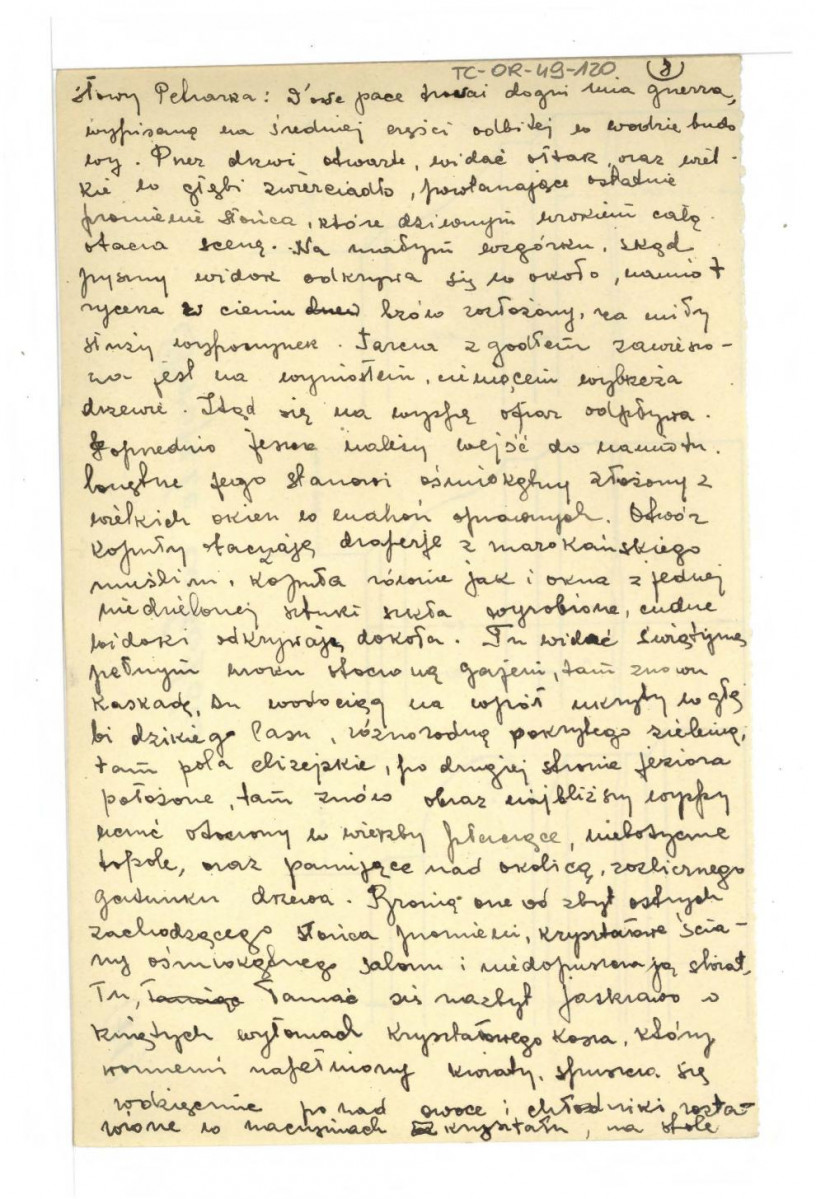 TC-OR-49-120 (8)
słowy Petrarka: D'ove pace trovai dogni mia guerra,
wypisaną na średniej części odbitej w wodzie budo
wy. Przez drzwi otwarte, widać ołtarz, oraz wiel-
kie w głębi zwierciadło, powtarzające ostatnie
promienie słońca, które dziwnym urokiem całą
otacza scenę. Na małym wzgórku, skąd
pyszny widok odkrywa się w około, namiot
rycerza w cieniu drzew bzów rozłożony, za miły
służy wypoczynek. Tarcza z godłem zawieszo-
na jest na wyniosłem, wybrzeża
drzewie. Stąd się na wyspę ofiar odpływa.
Poprzednio jeszcze należy wejść do namiotu.
Wnętrze jego stanowi ośmiokątny złożony z
wielkich okien w mahoń oprawnych. Otwór
kopuły otaczają draperje z marokańskiego
muślinu, kopuła równie jak i okna z jednej
niedzielonej sztuki szkła wyrobione, cudne
widoki odkrywają dokoła. Tu widać świątynię
pełnym uroku otoczoną gajem, tam znowu
kaskadę, tu wodociąg na wpół ukryty w głę
bi dzikiego lasu, różnorodną pokrytego zielenią,
tam pola elizejskie, po drugiej stronie jeziora
położone, tam znów obraz najbliższy wyspy
otoczony w wierzby płaczące, niebotyczne
topole, oraz panujące nad okolicą, rozlicznego
gatunku drzewa. Bronią one od zbyt ostrych
zachodzącego słońca promieni, kryształowe ścia-
ny ośmiokątnego salonu i niedopuszczają
Tu, łamać się nazbyt jaskrawo o
wyłomach kryształowego kosza, który
wonnemi napełniony kwiaty, spuszcza się
wdzięcznie ponad owoce i chłodniki rozsta-
wione w naczyniach kryształu, na stole